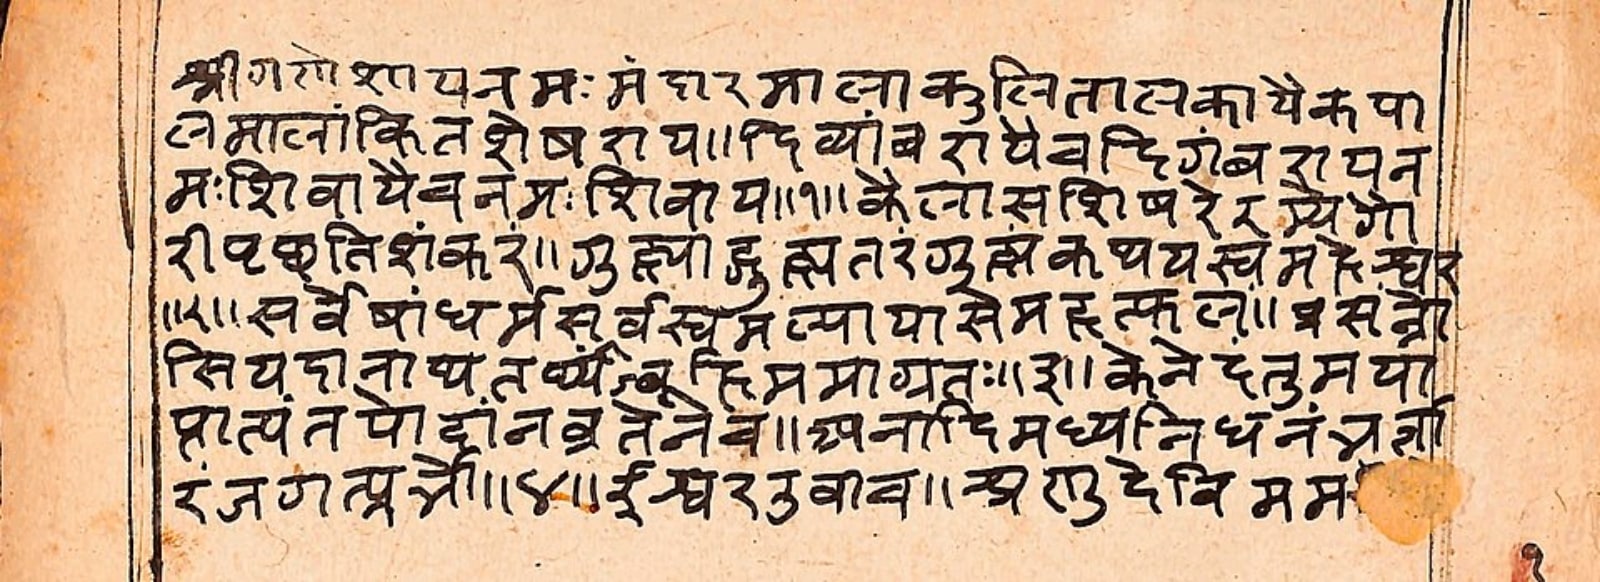 श्रीगणेशायनमःमंदारमालाकुलितालकायैकपा
लमालांकितशेषराय॥दिव्यांबरायैचदिगंबरायन
मःशिवायैचनमःशिवाय॥१॥कैलासशिषरेरम्येगौ
रीपृछतिशंकरं॥गुह्याद्गुह्यतरंगुह्यंकथयस्वमहेश्वर
॥२॥सर्वेषांधर्मसर्वस्वमल्पायासेमहत्फलं॥प्रसन्नो
सियदानाथतथ्यंब्रूहिममाग्रतः॥३॥केनेदंतुमया
प्रात्यंतपोदांनव्रतेनेव॥अनादिमध्यनिधनंभर्त्ता
रंजगत्प्रभौ॥४॥ईश्वरउवाच॥श्रणुदेविमम
१